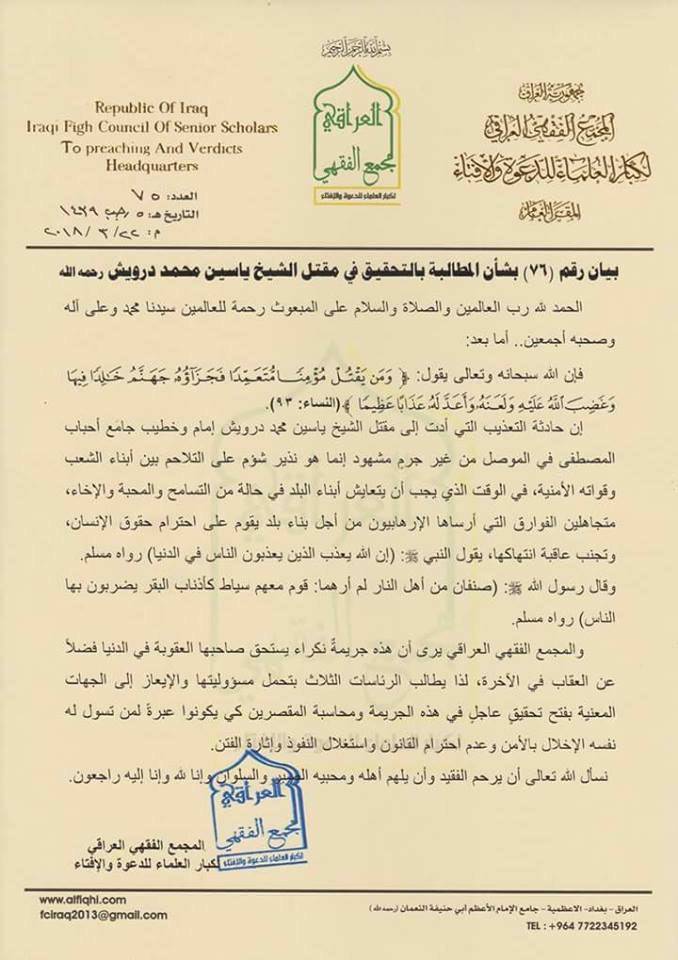 بسم الله الرحمن الرحيم
جمهورية العراق
المجمع الفقهي العراقي
لكبار العلماء للدعوة والافتاء
المقر العام
العراقي
لمجمع الفقهي
لكبار العلماء للدعوة والإفتاء
Republic Of Iraq
Iraqi Figh Council Of Senior Scholars
To preaching And Verdicts
Headquarters
العدد: ٧٥
التاريخ هـ: ٥ رجب ١٤٣٩
م: ٢٢/ ٣/ ٢٠١٨
بيان رقم (٧٦) بشأن المطالبة بالتحقيق في مقتل الشيخ ياسين محمد درويش رحمه الله
الحمد لله رب العالمين والصلاة والسلام على المبعوث رحمة للعالمين سيدنا محمد وعلى آله
وصحبه أجمعين.. أما بعد:
فإن الله سبحانه وتعالى يقول: ﴿ وَمَن يَقْتُلْ مُؤْمِنًا مُّتَعَمِّدًا فَجَزَآؤُهُ جَهَنَّمُ خَٰلِدًا فِيهَا
وَغَضِبَ اللَّهُ عَلَيْهِ وَلَعَنَهُ وَأَعَدَّ لَهُ عَذَابًا عَظِيمًا ﴾(النساء: ٩٣).
إن حادثة التعذيب التي أدت إلى مقتل الشيخ ياسين محمد درويش إمام وخطيب جامع أحباب
المصطفى في الموصل من غير جرمٍ مشهود إنما هو نذير شؤم على التلاحم بين أبناء الشعب
وقواته الأمنية، في الوقت الذي يجب أن يتعايش أبناء البلد في حالة من التسامح والمحبة والإخاء،
متجاهلين الفوارق التي أرساها الإرهابيون من أجل بناء بلد يقوم على احترام حقوق الإنسان،
وتجنب عاقبة انتهاكها، يقول النبي ﷺ: (إن الله يعذب الذين يعذبون الناس في الدنيا) رواه مسلم.
وقال رسول الله ﷺ: (صنفان من أهل النار لم أرهما: قوم معهم سياط كأذناب البقر يضربون بها
الناس) رواه مسلم.
والمجمع الفقهي العراقي يرى أن هذه جريمةٌ نكراء يستحق صاحبها العقوبة في الدنيا فضلاً
عن العقاب في الآخرة، لذا يطالب الرئاسات الثلاث بتحمل مسؤوليتها والإيعاز إلى الجهات
المعنية بفتح تحقيقٍ عاجلٍ في هذه الجريمة ومحاسبة المقصرين كي يكونوا عبرةً لمن تسول له
نفسه الإخلال بالأمن وعدم احترام القانون واستغلال النفوذ وإثارة الفتن.
نسأل الله تعالى أن يرحم الفقيد وأن يلهم أهله ومحبيه الصبر والسلوان وإنا لله وإنا إليه راجعون.
العراقي
لمجمع الفقهي
لكبار العلماء للدعوة والإفتاء
المجمع الفقهي العراقي
لكبار العلماء للدعوة والإفتاء
www.alfiqhi.com
fciraq2013@gmail.com
العراق - بغداد- الاعظمية - جامع الإمام الأعظم أبي حنيفة النعمان (رحمه الله)
TEL : +964 7722345192